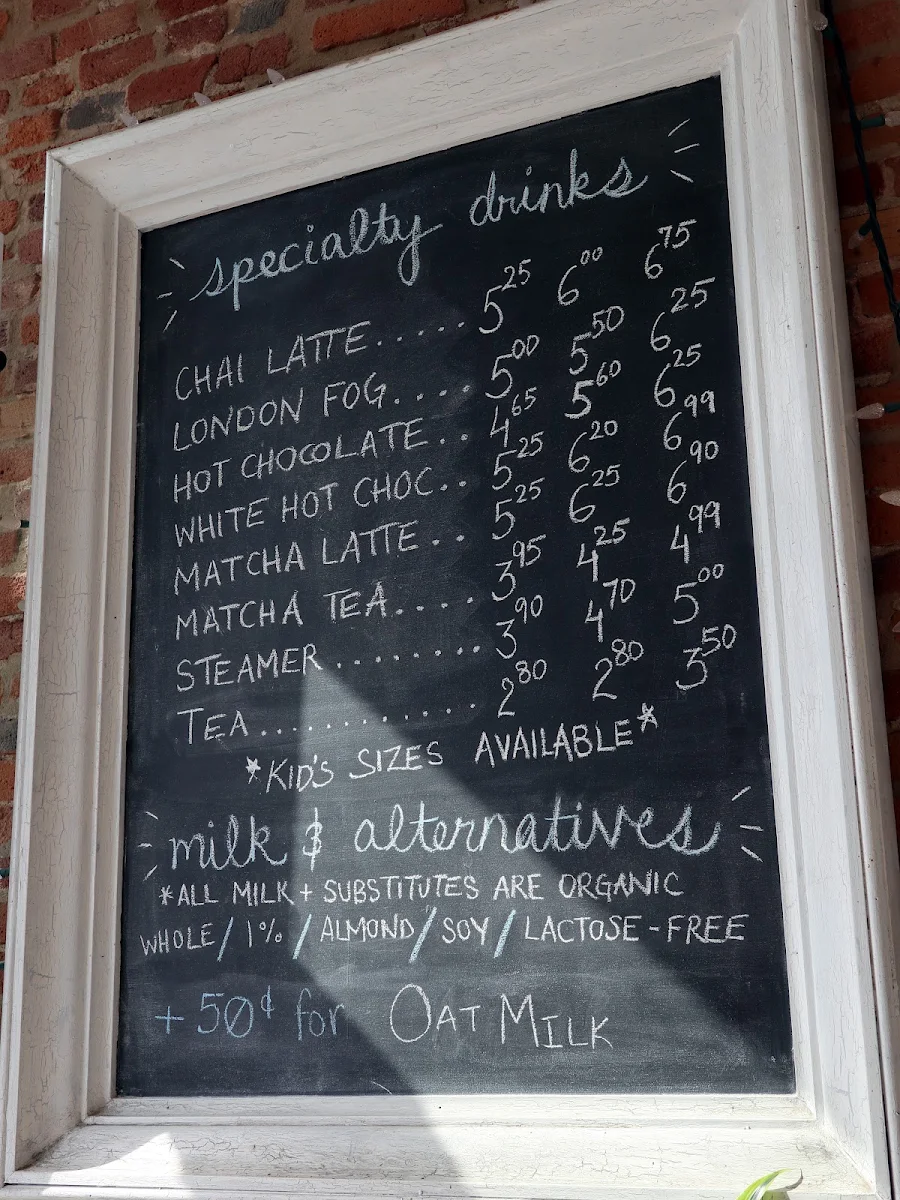 specialty drinks
CHAI LATTE..... 5.25 6.00 6.75
LONDON FOG.... 5.00 5.50 6.25
HOT CHOCOLATE.. 4.65 5.60 6.25
WHITE HOT CHOC.. 5.25 6.20 6.99
MATCHA LATTE.. 5.25 6.25 6.90
MATCHA TEA.... 3.95 4.25 4.99
STEAMER........ 3.90 4.70 5.00
TEA............ 2.80 2.80 3.50
*KID'S SIZES AVAILABLE*
milk & alternatives
*ALL MILK + SUBSTITUTES ARE ORGANIC
WHOLE / 1% / ALMOND / SOY / LACTOSE-FREE
+ 50¢ for OAT MILK